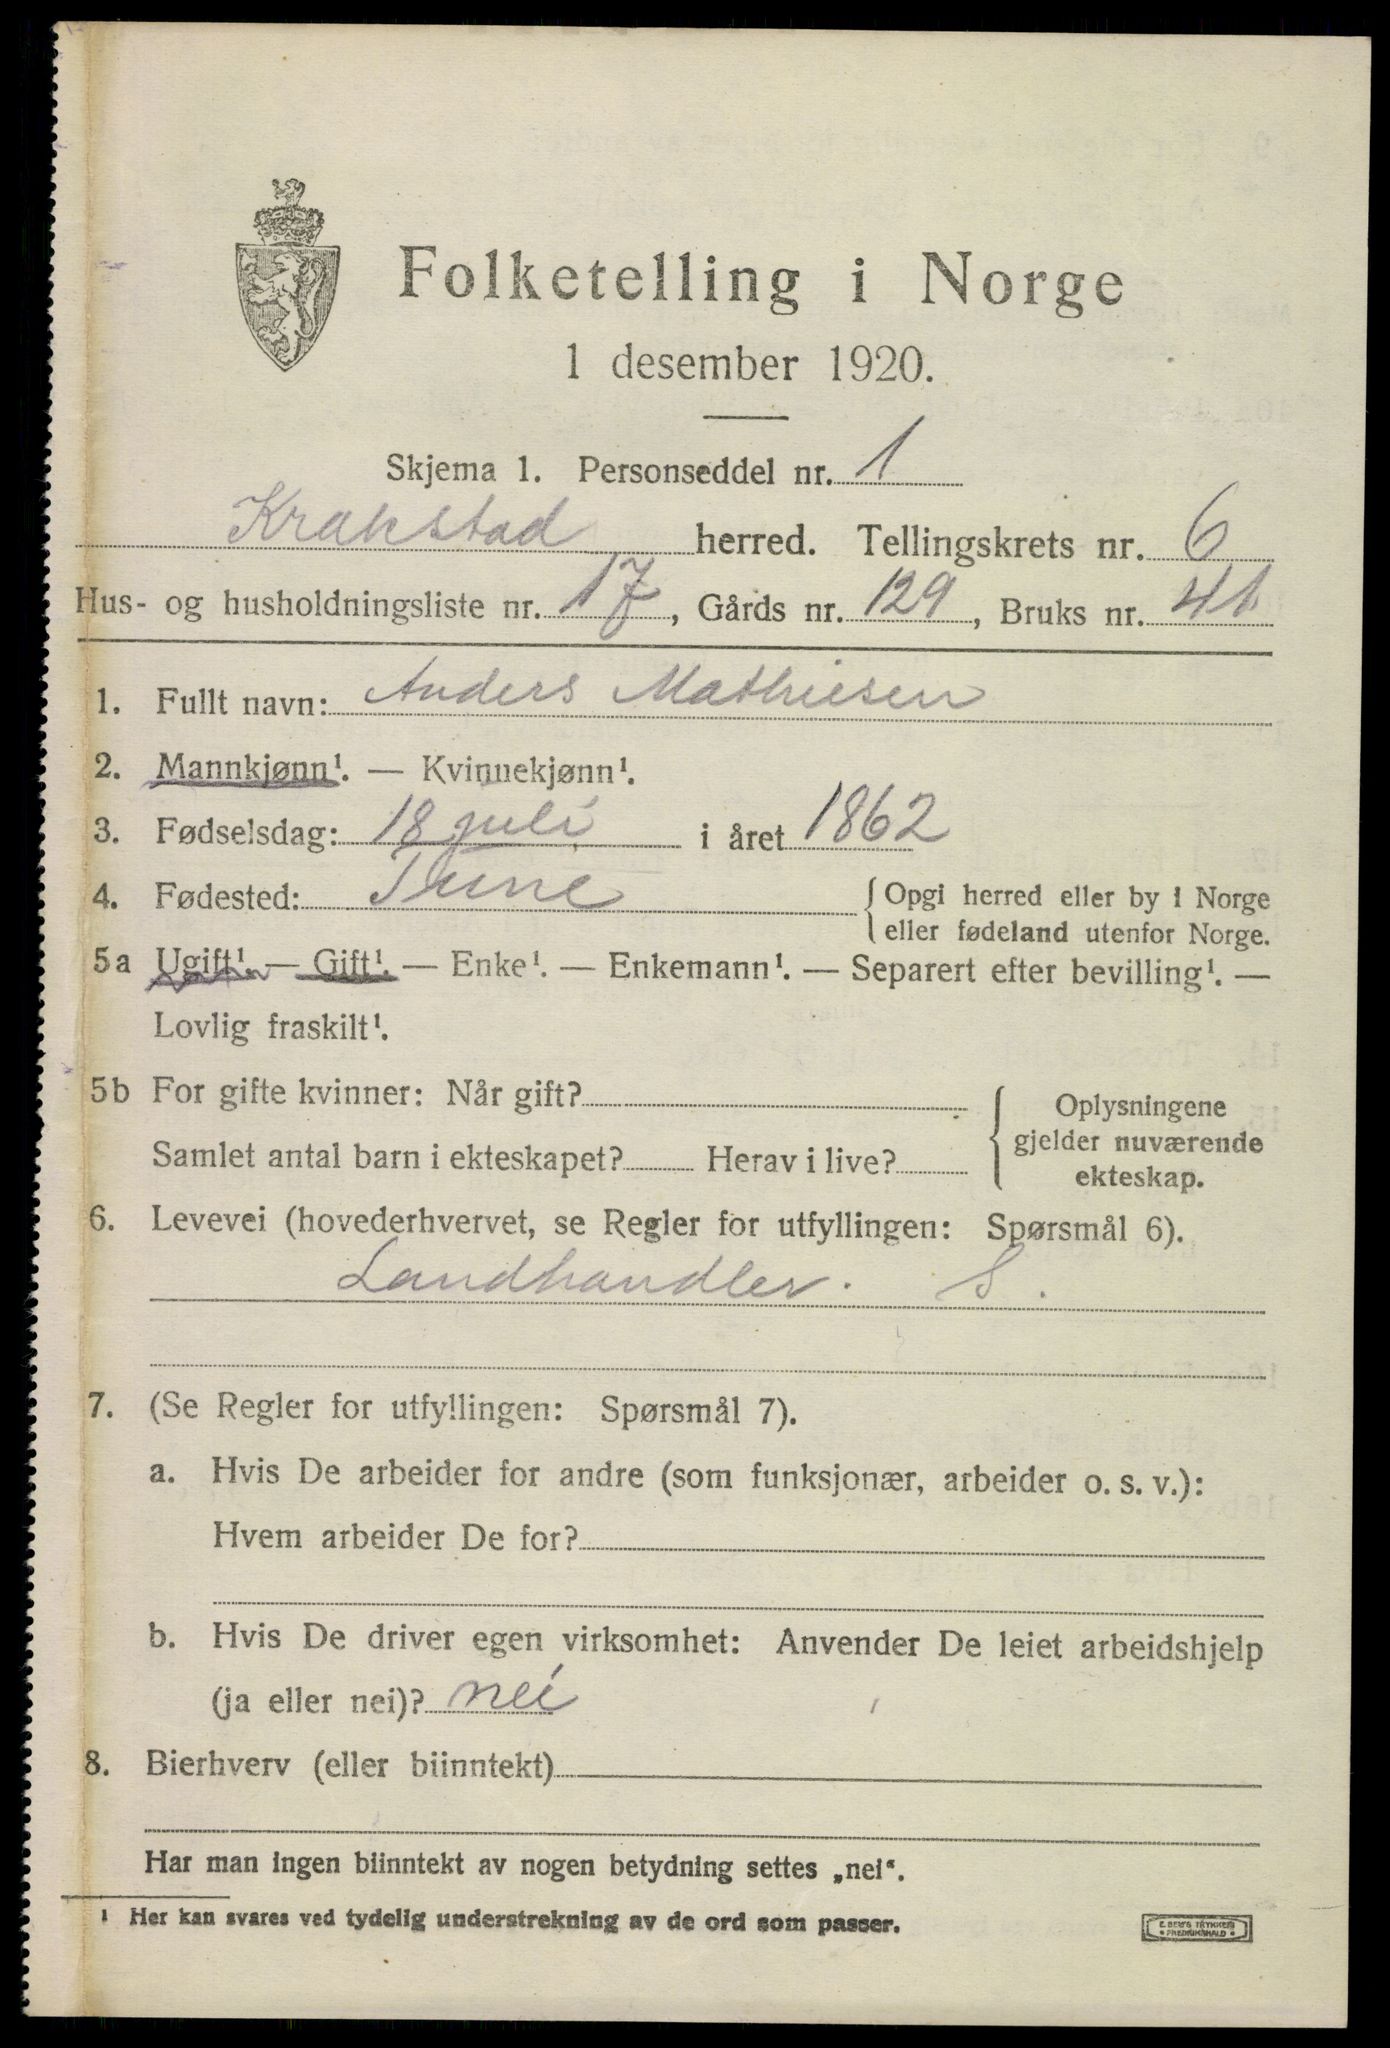 Folketelling i Norge
1 desember 1920.
Skjema 1. Personseddel nr. 1
Krakstad herred. Tellingskrets nr. 6
Hus- og husholdningsliste nr. 17, Gårds nr. 129, Bruks nr. 41
1. Fullt navn: Anders Mathiesen
2. Mannkjønn¹. — Kvinnekjønn¹.
3. Fødselsdag: 18 juli i året 1862
4. Fødested: Tune { Opgi herred eller by i Norge
eller fødeland utenfor Norge.
5a Ugift¹. — Gift¹. — Enke¹. — Enkemann¹. — Separert efter bevilling¹. —
Lovlig fraskilt¹.
5b For gifte kvinner: Når gift?
Samlet antal barn i ekteskapet? Herav i live?
{ Oplysningene
gjelder nuværende
ekteskap.
6. Levevei (hovederhvervet, se Regler for utfyllingen: Spørsmål 6).
Landhandler. S.
7. (Se Regler for utfyllingen: Spørsmål 7).
a. Hvis De arbeider for andre (som funksjonær, arbeider o. s. v.):
Hvem arbeider De for?
b. Hvis De driver egen virksomhet: Anvender De leiet arbeidshjelp
(ja eller nei)? nei
8. Bierhverv (eller biinntekt)
Har man ingen biinntekt av nogen betydning settes „nei“.
¹ Her kan svares ved tydelig understrekning av de ord som passer.
E. SEM'S TRYKKERI
• FREDRIKSHALD •